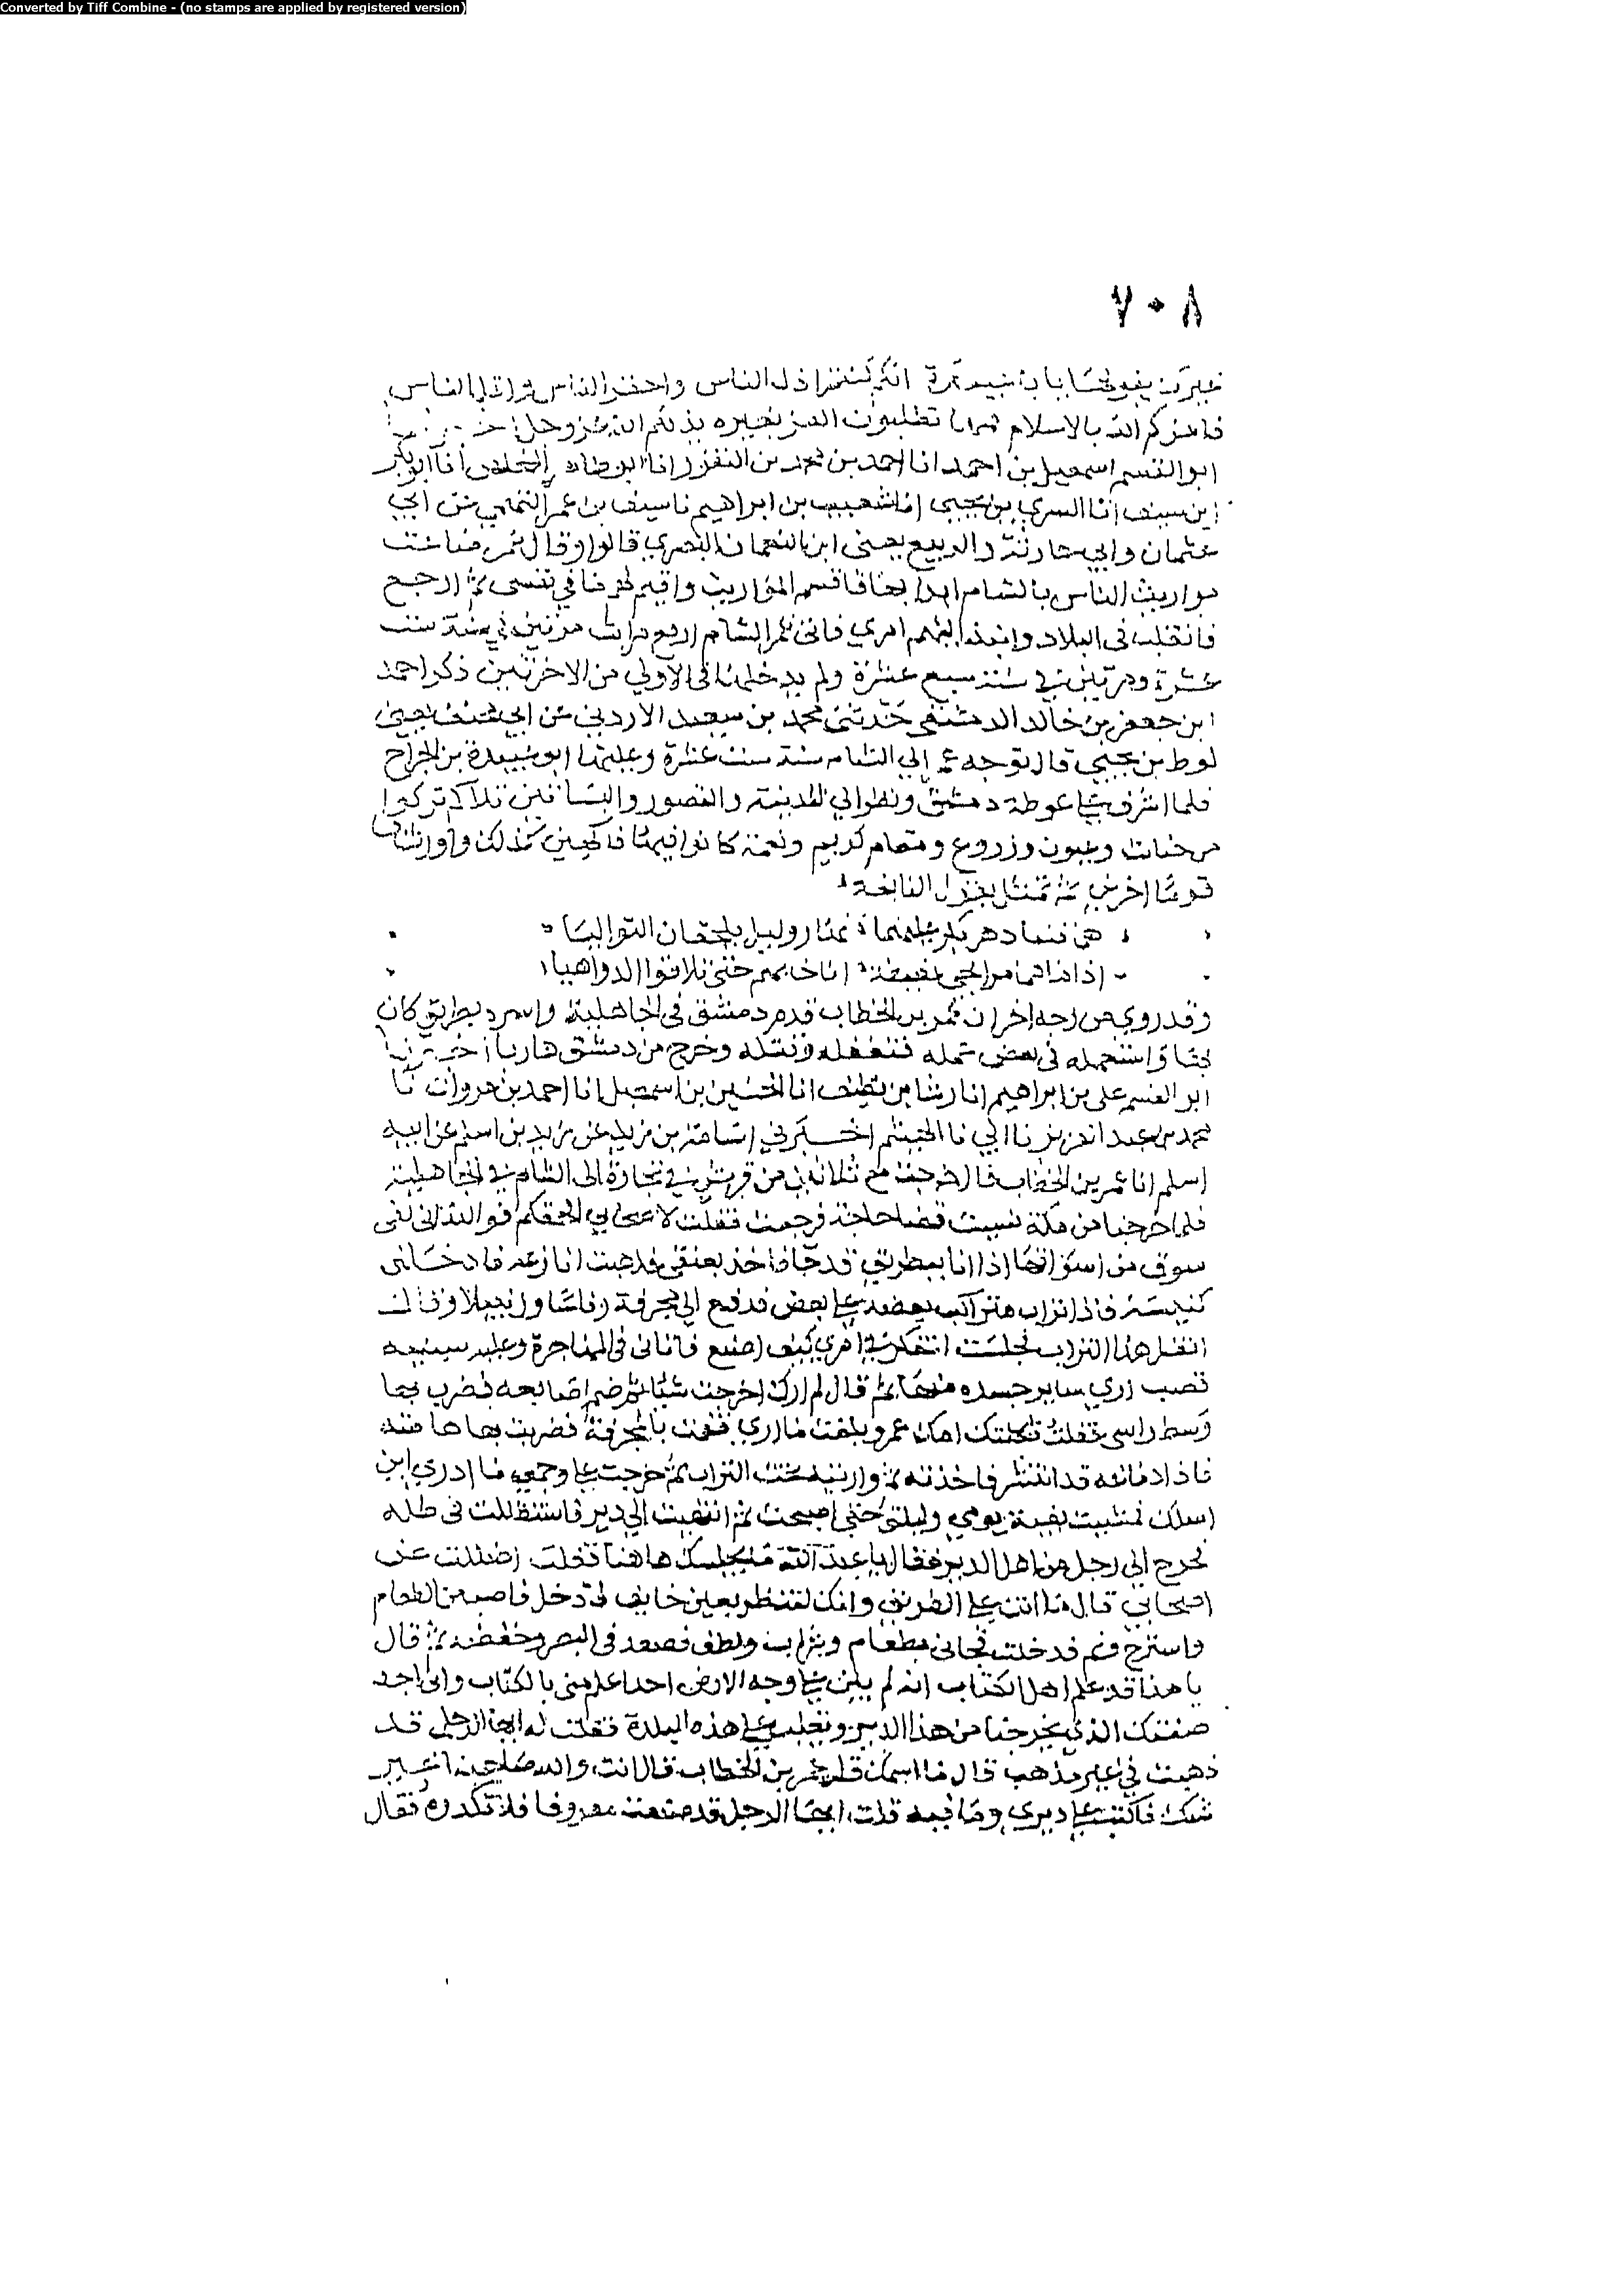 Converted by Tiff Combine - (no stamps are applied by registered version)
٧٠٨
غيرك يقولها يابا عبيدة انكم كنتم اذل الناس واحقر الناس واقل الناس
فاعزكم الله بالاسلام فمهما تطلبون العز بغيره يذلكم الله عز وجل
ابو القسم اسمعيل بن احمد انا احمد بن محمد بن النقور انا ابو طاهر المخلص انا ابو بكر
ابن سيف انا السري بن يحيى انا شعيب بن ابراهيم نا سيف بن عمر التميمي عن ابي
عثمان وابي حارثة والربيع يعني ابن النعمان البصري قالوا وقال عمر ضاعت
مواريث الناس بالشام ابدا بها فاقسم المواريث واقيم لهم ما في نفسي ثم ارجع
فاتقلب في البلاد وانبذ اليهم امري فاتى عمر الشام اربع مرات مرتين في سنة ست
عشرة ومرتين في سنة سبع عشرة ولم يدخلها في الاولى من الاخرتين ذكر احمد
ابن جعفر بن خالد الدمشقي حدثني محمد بن سعيد الاردني عن ابي مخنف يعني
لوط بن يحيى قال توجه عمر الي الشام سنة ست عشرة وعليها ابو عبيدة بن الجراح
فلما اشرف على غوطة دمشق ونظر الي المدينة والقصور والبساتين تلا كم تركوا
من جنات وعيون وزروع ومقام كريم ونعمة كانوا فيها فاكهين كذلك واورثناها
قوما اخرين ثم تمثل بقول النابغة
هما فتيا دهر يكر عليهما نهار وليل يلحقان التواليا
اذا ما هما مرا بحي بغبطة اناخا بهم حتى يلاقوا الدواهيا
وقد روي من وجه اخر ان عمر بن الخطاب قدم دمشق في الجاهلية واسره بطريق كان
بها واستعمله في بعض عمله فتغفله وقتله وخرج من دمشق هاربا اخبرنا
ابو القسم علي بن ابراهيم انا رشا بن نظيف انا الحسن بن اسمعيل انا احمد بن مروان نا
محمد بن عبد العزيز نا ابي نا الهيثم اخبرني اسامة بن زيد عن زيد بن اسلم عن ابيه
اسلم انا عمر بن الخطاب قال خرجت مع ثلاثين من قريش في تجارة الى الشام في الجاهلية
فلما خرجنا من مكة نسيت قضا حاجة فرجعت فقلت لاصحابي الحقكم فوالله اني لفي
سوق من اسواقها اذا انا ببطريق قد جا فاخذ بعنقي فذهبت انازعه فادخلني
كنيسة فاذا تراب متراكب بعضه على بعض فدفع الي مجرفة وفاسا وزنبيلا وقال
انقل هذا التراب فجلست اتفكر في امري كيف اصنع فاتاني في الهاجرة وعليه سبنية
قصب اري ساير جسده منها ثم قال لم ارك اخرجت شيئا ثم ضم اصابعه فضرب بها
وسط راسي فقلت ثكلتك امك عمر وبلغت ما اري فقمت بالمجرفة فضربت بها هامته
فاذا دماغه قد انتثر فاخذته ثم واريته تحت التراب ثم خرجت على وجهي ما ادري اين
اسلك فمشيت بقية يومي وليلتي حتى اصبحت ثم انتهيت الي دير فاستظللت في ظله
فخرج الي رجل من اهل الدير فقال يا عبد الله ما يجلسك هاهنا فقلت اضللت عن
اصحابي قال ما انت على الطريق وانك لتنظر بعين خايف ادخل فاصب من الطعام
واسترح ونم فدخلت فجاني بطعام وشراب ولطف فصعد في البصر وخفضه ثم قال
يا هذا قد علم اهل الكتاب انه لم يبق على وجه الارض احد اعلم مني بالكتاب واني اجد
صفتك الذي يخرجنا من هذا الدير ويغلب على هذه البلدة فقلت له ايها الرجل قد
ذهبت في غير مذهب قال ما اسمك قلت عمر بن الخطاب قال انت والله صاحبنا غير
شك فاكتب على ديري وما فيه قلت ايها الرجل قد صنعت معروفا فلا تكدره فقال